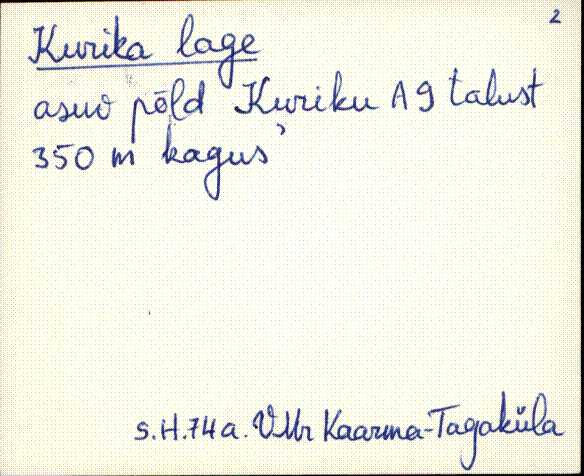 2
Kurika lage
asuv põld Kuriku A9 talust
350 m kagus
s.H.74a. VMr Kaarma-Tagaküla